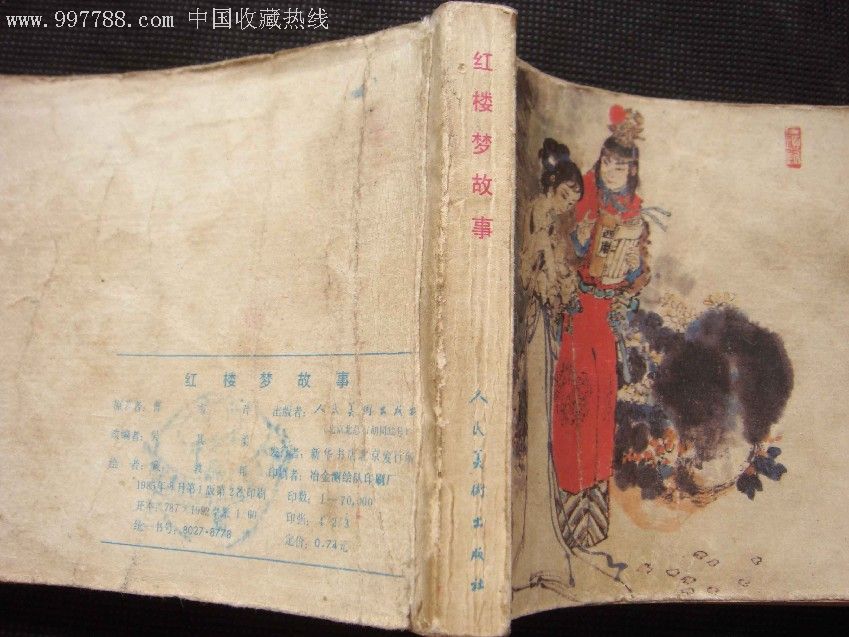 www.997788.com 中国收藏热线
红楼梦故事
人民美术出版社
西厢
红楼梦故事
原著者：曹雪芹
改编者：
绘者：
1985年 月第1版第2次印刷
开本：787×1092毫米 1/60
统一书号：8027·8778
出版者：人民美术出版社
（北京北总布胡同32号）
发行者：新华书店北京发行所
印刷者：冶金测绘队印刷厂
印数：1—70,000
印张：4 2/3
定价：0.74元